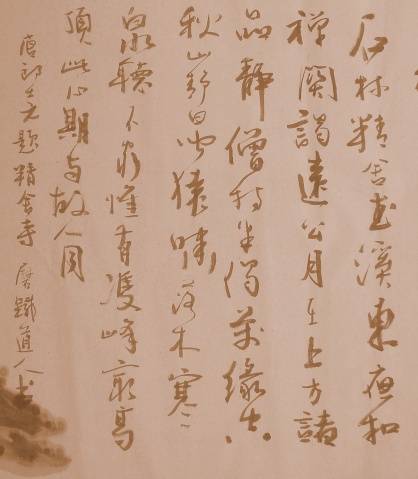 石林精舍武溪東夜扣
禪關謁遠公月在上方諸
品静僧持半偈萬緣空
秋山竟日聞猿嘯落木寒
泉聽不窮惟有雙峰最高
頂此心期与故人同
唐郎士元題精舍寺 磨鐵道人書